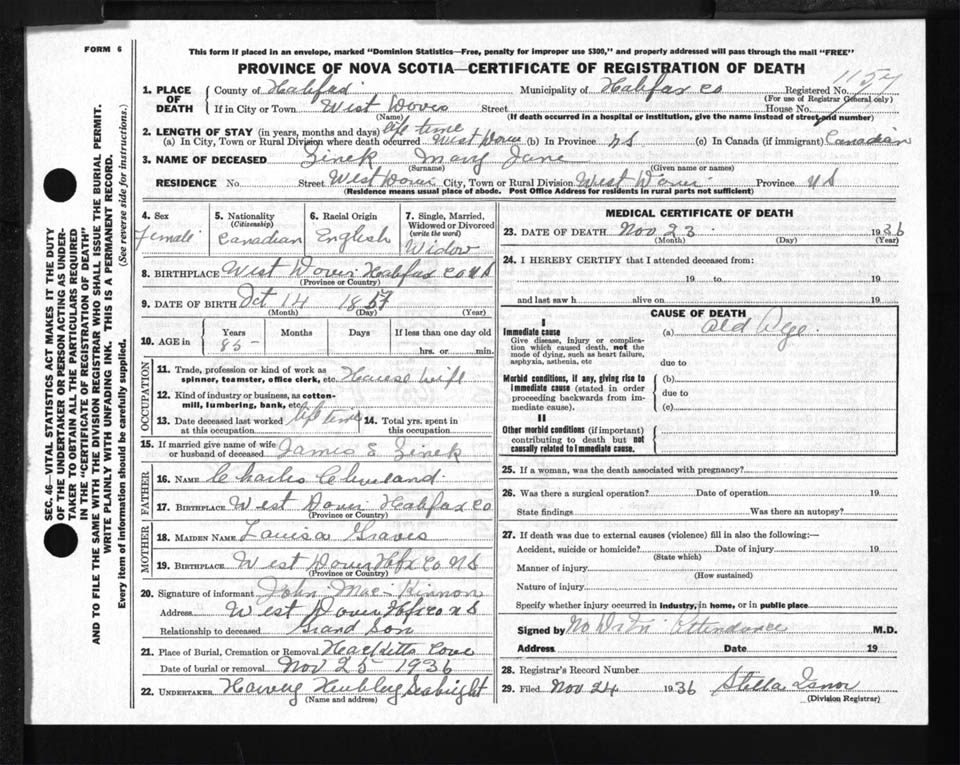 FORM 6
This form if placed in an envelope, marked "Dominion Statistics—Free, penalty for improper use $300," and properly addressed will pass through the mail "FREE"
PROVINCE OF NOVA SCOTIA—CERTIFICATE OF REGISTRATION OF DEATH
1. PLACE OF DEATH
County of Halifax Municipality of Halifax Co Registered No.
(For use of Registrar General only)
If in City or Town West Dover Street House No.
(Name) (If death occurred in a hospital or institution, give the name instead of street and number)
2. LENGTH OF STAY (in years, months and days) life time
(a) In City, Town or Rural Division where death occurred West Dover (b) In Province NS (c) In Canada (if immigrant) Canadian
3. NAME OF DECEASED Zinck Mary Jane
(Surname) (Given name or names)
RESIDENCE No. Street West Dover City, Town or Rural Division West Dover Province NS
(Residence means usual place of abode. Post Office Address for residents in rural parts not sufficient)
4. Sex
Female
5. Nationality
(Citizenship)
Canadian
6. Racial Origin
English
7. Single, Married, Widowed or Divorced
(write the word)
Widow
8. BIRTHPLACE West Dover Halifax Co NS
(Province or Country)
9. DATE OF BIRTH Oct 14
(Month) (Day) (Year)
10. AGE in
Years Months Days If less than one day old
85 hrs. or min.
OCCUPATION
11. Trade, profession or kind of work as
spinner, teamster, office clerk, etc. House wife
12. Kind of industry or business, as cotton-
mill, lumbering, bank, etc.
13. Date deceased last worked at this occupation life time
14. Total yrs. spent in this occupation
15. If married give name of wife
or husband of deceased James E Zinck
FATHER
16. NAME Charles Cleveland
17. BIRTHPLACE West Dover Halifax Co
(Province or Country)
MOTHER
18. MAIDEN NAME Louisa Graves
19. BIRTHPLACE West Dover Hfx Co NS
(Province or Country)
20. Signature of informant John MacKinnon
Address West Dover Hfx Co NS
Relationship to deceased Grand Son
21. Place of Burial, Cremation or Removal Cove
Date of burial or removal Nov 25 1936
22. UNDERTAKER Harvey Hubley Seabright
(Name and address)
MEDICAL CERTIFICATE OF DEATH
23. DATE OF DEATH Nov 23 1936
(Month) (Day) (Year)
24. I HEREBY CERTIFY that I attended deceased from:
19 to 19
and last saw h alive on 19
CAUSE OF DEATH
I
Immediate cause (a) Old Age
Give disease, injury or complica-
tion which caused death, not the
mode of dying, such as heart failure,
asphyxia, asthenia, etc due to
Morbid conditions, if any, giving rise to (b)
immediate cause (stated in order due to
proceeding backwards from im-
mediate cause). (c)
II
Other morbid conditions (if important)
contributing to death but not
causally related to immediate cause.
25. If a woman, was the death associated with pregnancy?
26. Was there a surgical operation? Date of operation 19
State findings Was there an autopsy?
27. If death was due to external causes (violence) fill in also the following:—
Accident, suicide or homicide? Date of injury 19
(State which)
Manner of injury
(How sustained)
Nature of injury
Specify whether injury occurred in industry, in home, or in public place
Signed by No Attendance M.D.
Address Date 19
28. Registrar's Record Number
29. Filed Nov 24 1936 Stella Isnor
(Division Registrar)
SEC. 46—VITAL STATISTICS ACT MAKES IT THE DUTY
OF THE UNDERTAKER OR PERSON ACTING AS UNDER-
TAKER TO OBTAIN ALL THE PARTICULARS REQUIRED
IN THE "CERTIFICATE OF REGISTRATION OF DEATH"
AND TO FILE THE SAME WITH THE DIVISION REGISTRAR WHO SHALL ISSUE THE BURIAL PERMIT.
WRITE PLAINLY WITH UNFADING INK. THIS IS A PERMANENT RECORD.
Every item of information should be carefully supplied. (See reverse side for instructions.)